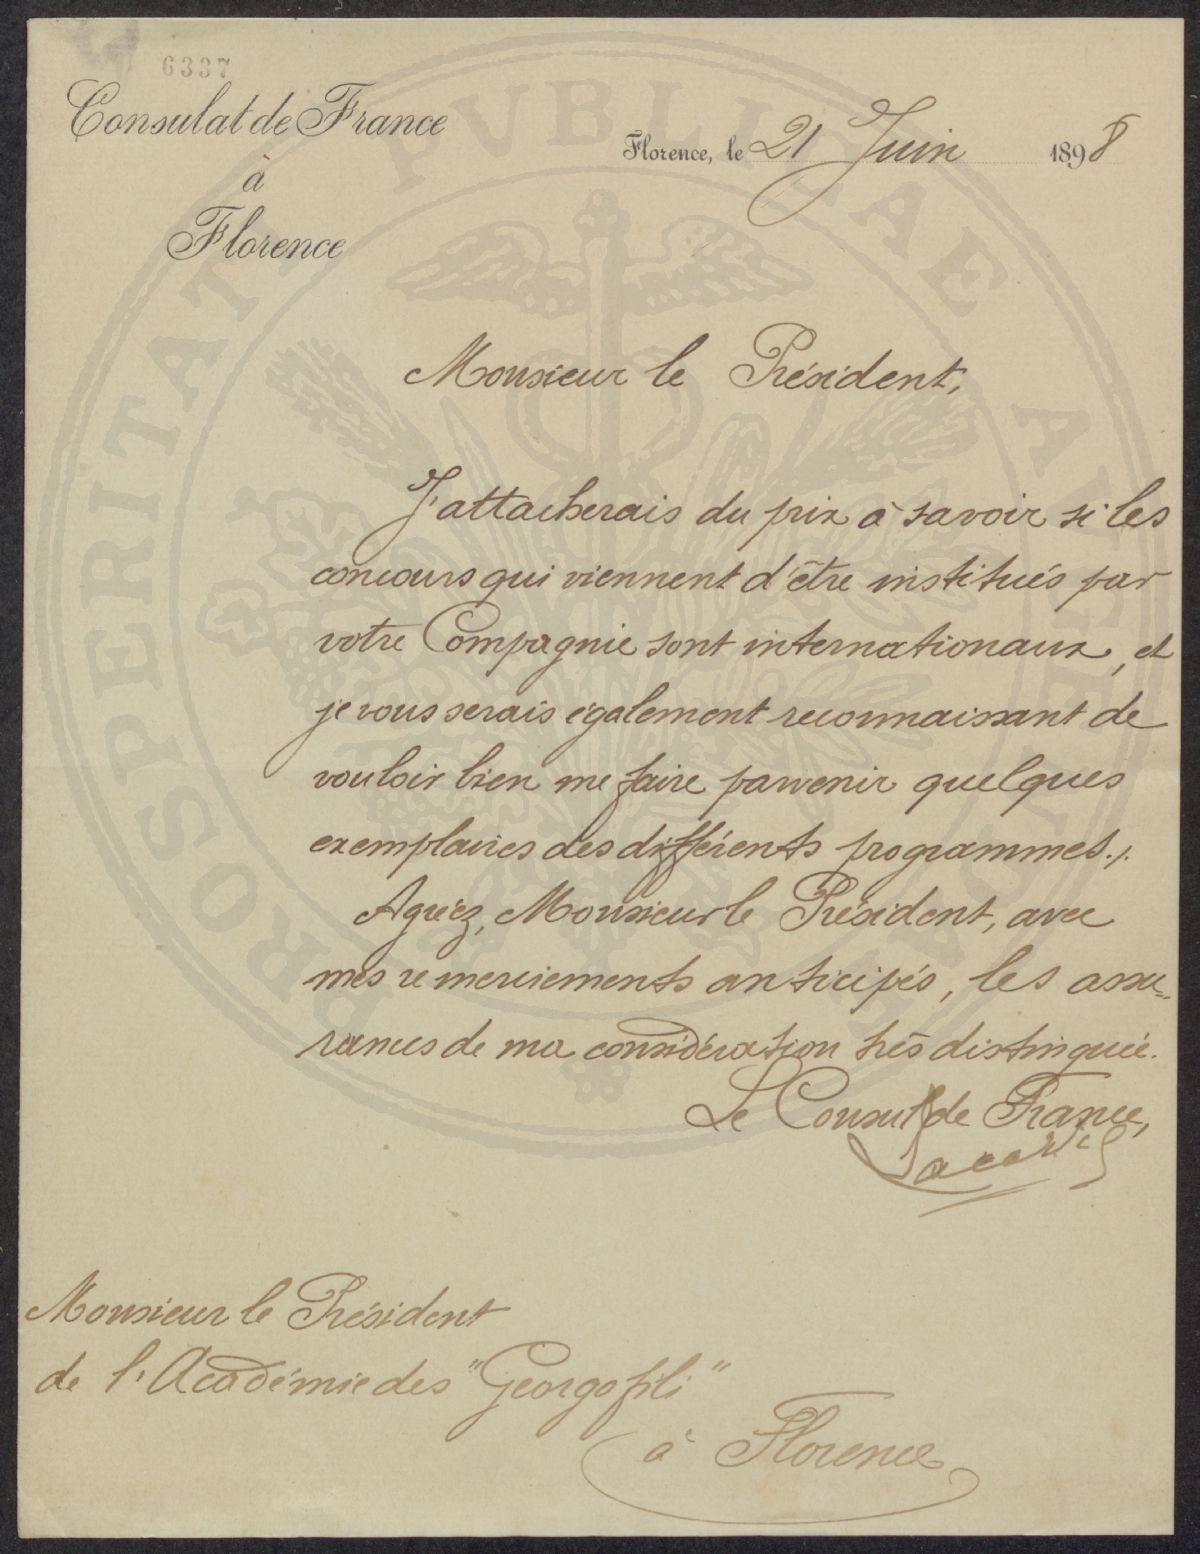 6337
Consulat de France
à
Florence
Florence, le 21 Juin 1898
Monsieur le Président,
J'attacherais du prix à savoir si les
concours qui viennent d'être institués par
votre Compagnie sont internationaux, et
je vous serais également reconnaissant de
vouloir bien me faire parvenir quelques
exemplaires des différents programmes ./.
Agréez, Monsieur le Président, avec
mes remerciements anticipés, les assu=
rances de ma considération très distinguée.
Le Consul de France,
Monsieur le Président
de l'Académie des "Georgofili"
à Florence
PROSPERITATI PVBLICAE AVGENDAE